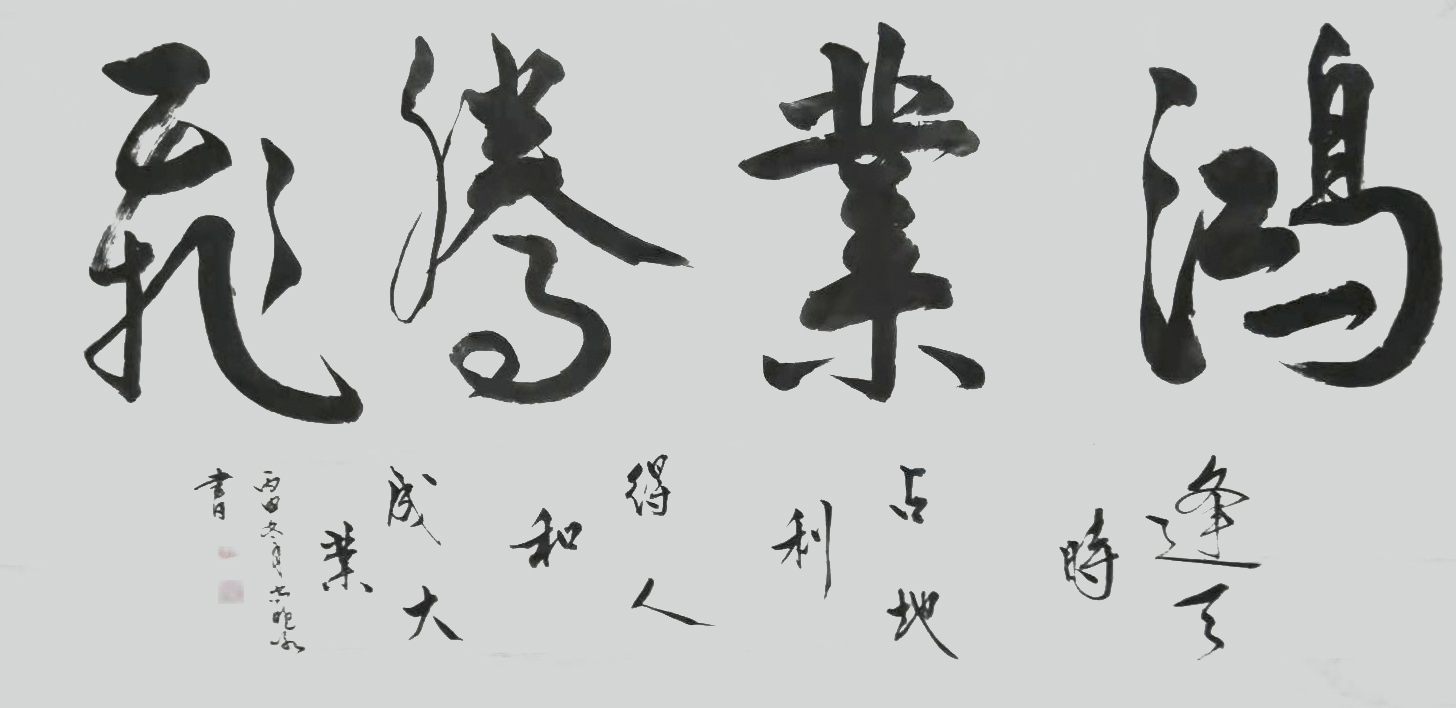 鴻業騰飛
逢天
時
占地
利
得人
和
成大
業
丙申冬月
書